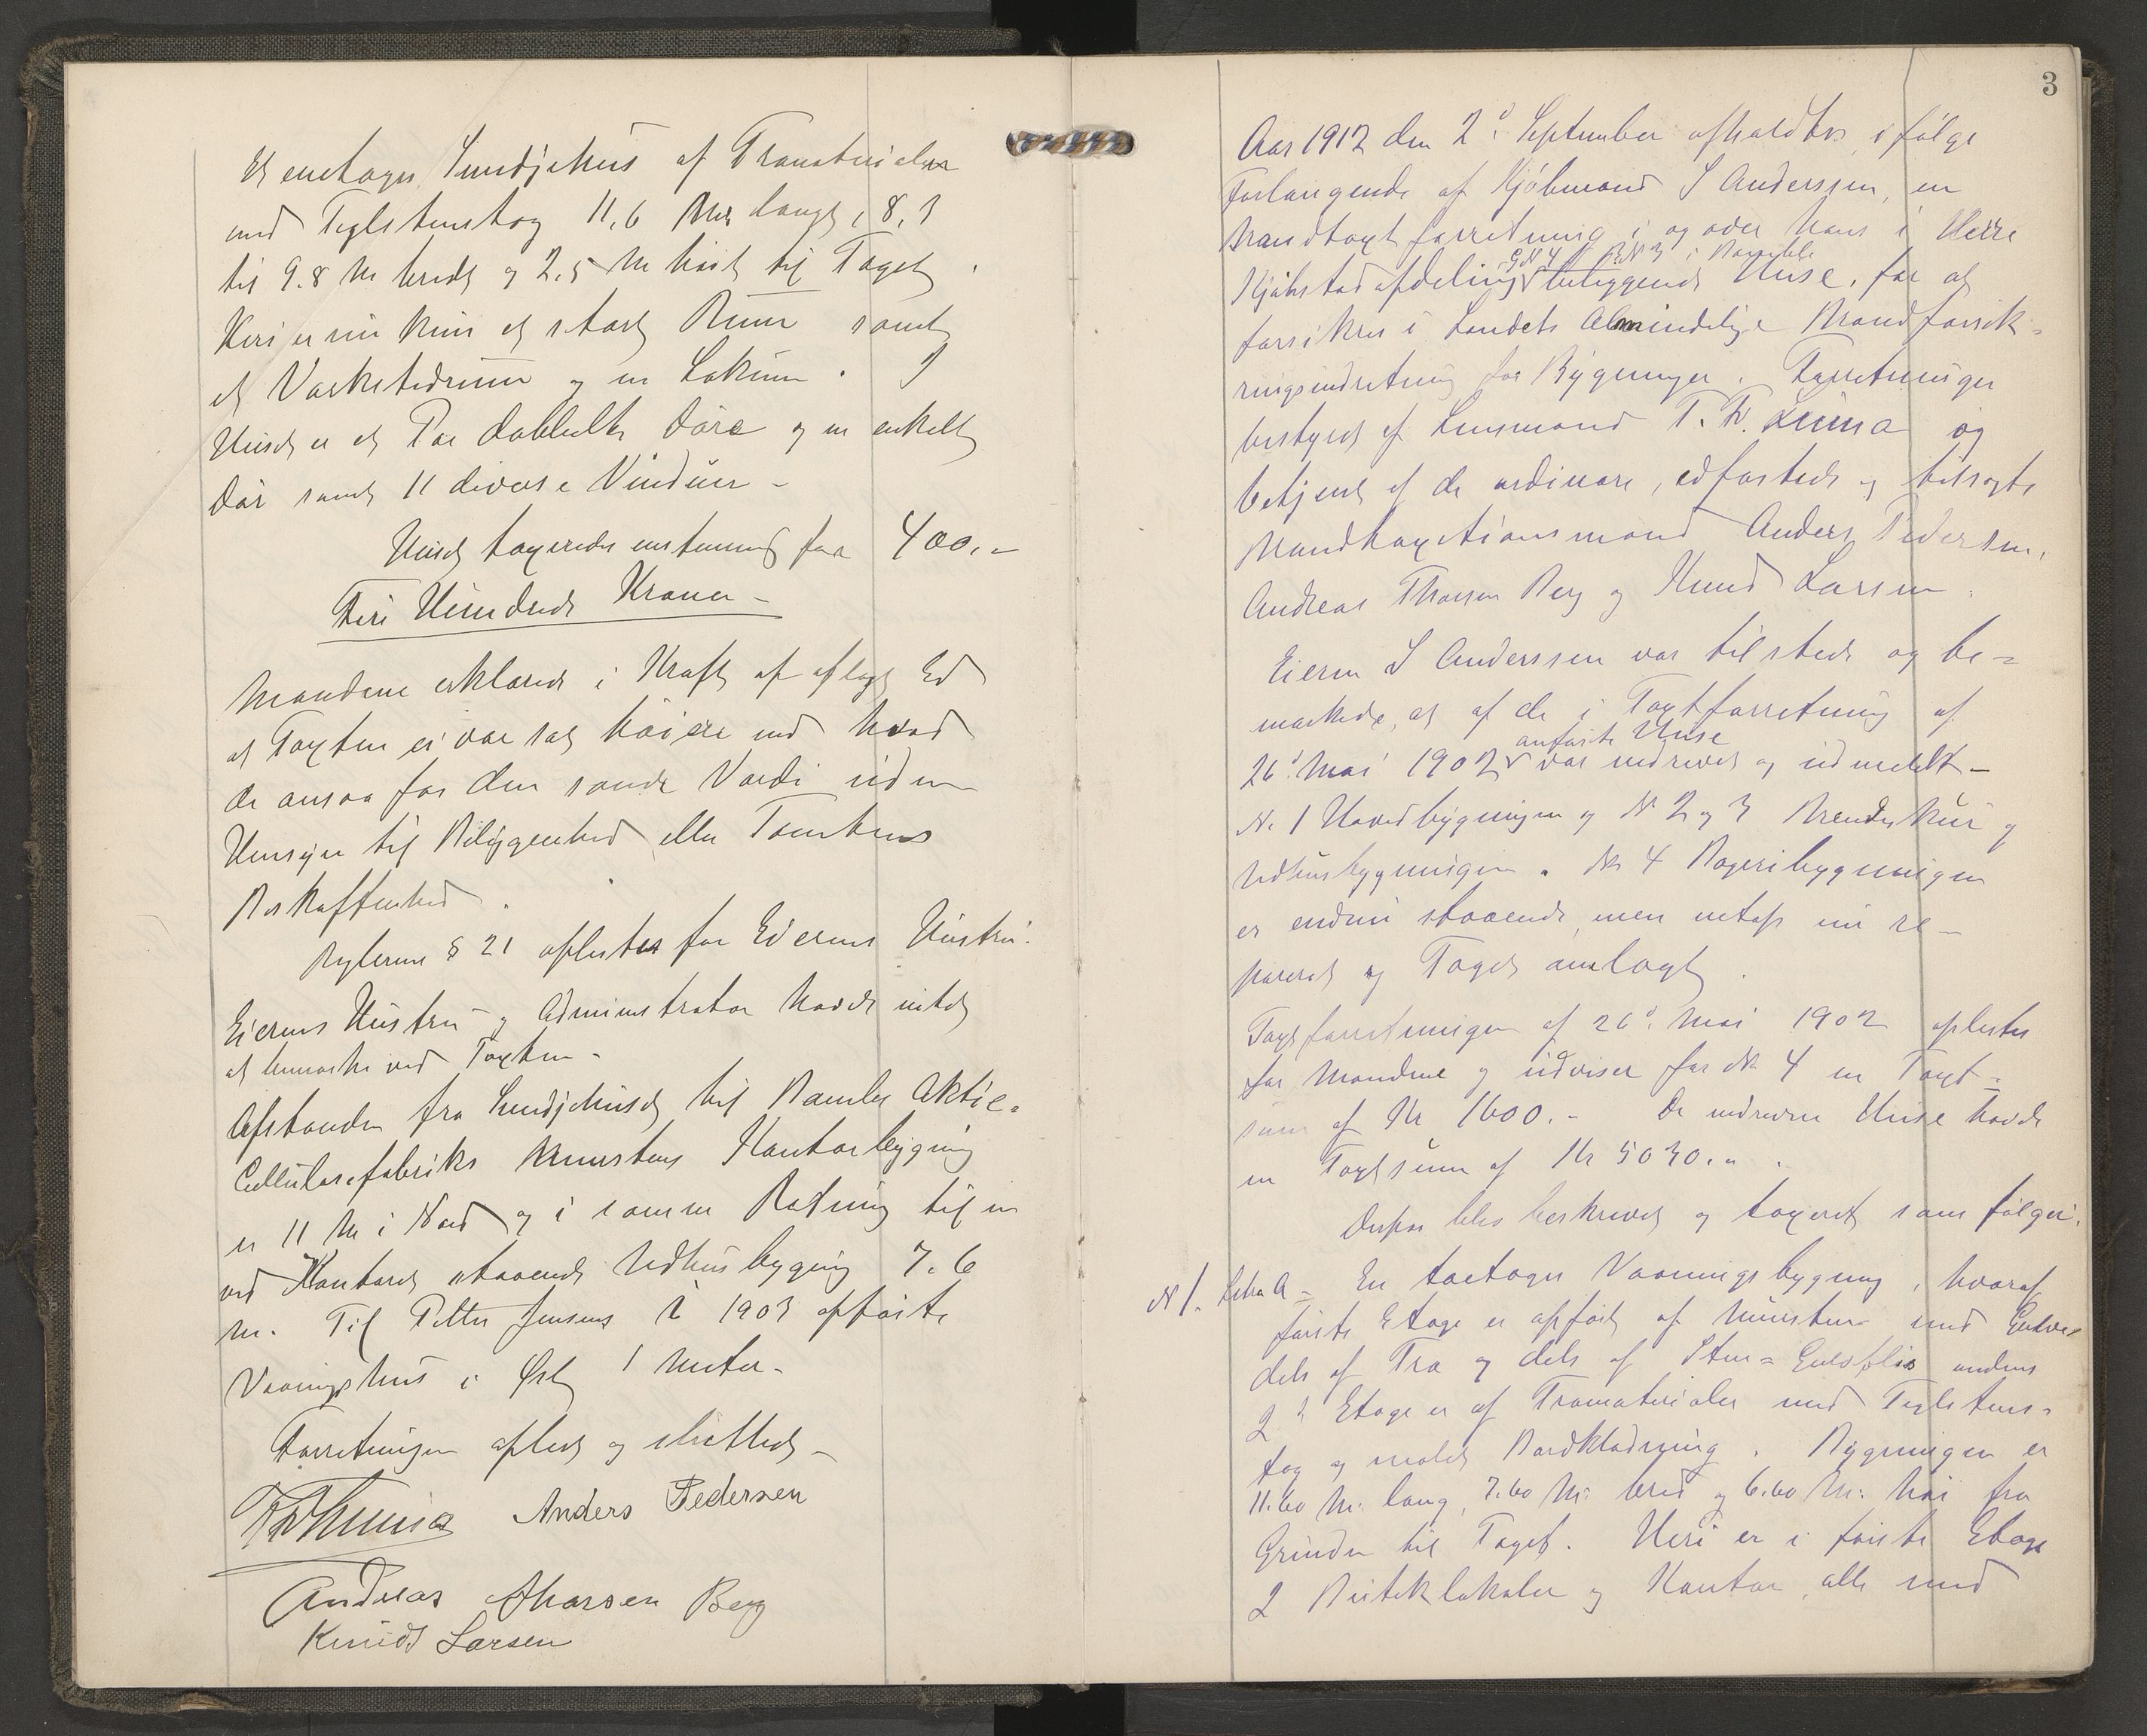 Et enetages Smedjehus af Træmaterialer
med Teglstenstag 11,6 Mtr langt, 8,3
til 9.8 M bredt og 2,5 M høit til Taget.
Heri er nu kun et stort Rum samt
et Værkstedrum og en Lokum.
Huset er et Par dobbelte Døre og en enkelt
Dør samt 11 diverse Vinduer -
Huset taxeredes enstemmig for 400.-
Fire Hundrede Kroner -
Mændene erklærede i Kraft af aflagt Ed
at Taxten ei var sat høiere end hvad
de ansaa for den sande Værdi uden
Hensyn til Beliggenhed eller Tomtens
Beskaffenhed.
Reglerne § 21 oplæstes for Eierens Hustru.
Eierens Hustru og Administrator havde intet
at bemærke ved Taxten -
Afstanden fra Smedjehuset til Bamble Aktie-
Cellulosefabriks Murstens Kontorbygning
er 11 M i Nord og i samme Retning til en
ved Kontoret staaende Udhusbygning 7.6
M. Til Petter Jensens i 1903 opførte
Vaaningshus i Øst 1 Meter -
Forretningen oplæst og sluttet -
Anders Pedersen
Andreas Thorsen Berg
Knud Larsen
3
Aar 1912 den 2d September afholdtes ifølge
Forlangende af Kjøbmand S Anderssen, en
Brandtaxtforretning i og over hans i Herre
GN 4 BN 3 i Bamble
Kjøbstadafdeling beliggende Huse, for at
forsikres i Landets Almindelige Brandforsik-
ringsindretning for Bygninger. Forretningen
bestyret af Lensmand T. W. Luma og
betjent af de ordinære, edfæstede og tilsagte
Brandtaxtionsmænd Anders Pedersen,
Andreas Thorsen Berg og Knud Larsen.
Eieren S Anderssen var tilstede og be-
mærkede, at af de i Taxtforretning af
anførte Huse
26d Mai 1902 var nedrevet og udmeldt -
No 1 Hovedbygningen og N 2 og 3 Brendeskur og
Udhusbygningen. No 4 Bageribygningen
er endnu staaende, men netop nu re-
pareret og Taget omlagt.
Taxtforretningen af 26d Mai 1902 oplæstes
for Mændene og udviser for No 4 en Taxt-
sum af Kr 1600.- De nedrevne Huse havde
en Taxtsum af Kr 5030.-
Derpaa blev beskrevet og taxeret som følger:
N 1. Litra A - En toetages Vaaningsbygning, hvoraf
første Etage er opført af Mursten med Gulve
dels af Træ og dels af Sten- Gulvflis medens
2d Etage er af Træmaterialer med Teglstens-
tag og malet Bordklædning. Bygningen er
11.60 M. lang, 7.60 M. bred og 6.60 M. høi fra
Grunden til Taget. Heri er i første Etage
2 Butiklokaler og Kontor, alle med